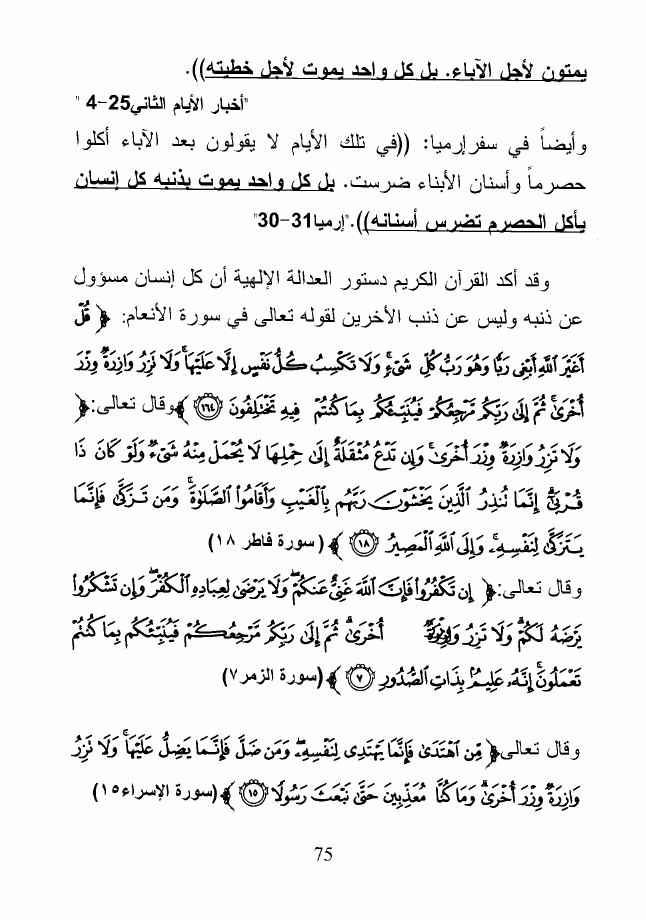 يمتون لأجل الآباء. بل كل واحد يموت لأجل خطيته)).
"أخبار الأيام الثاني25-4 "
وأيضاً في سفرإرميا: ((في تلك الأيام لا يقولون بعد الآباء أكلوا
حصرماً وأسنان الأبناء ضرست. بل كل واحد يموت بذنبه كل إنسان
يأكل الحصرم تضرس أسنانه))."إرميا31-30"
وقد أكد القرآن الكريم دستور العدالة الإلهية أن كل إنسان مسؤول
عن ذنبه وليس عن ذنب الأخرين لقوله تعالى في سورة الأنعام: ﴿ قُلْ
أَغَيْرَ اللَّهِ أَبْغِي رَبًّا وَهُوَ رَبُّ كُلِّ شَيْءٍ وَلَا تَكْسِبُ كُلُّ نَفْسٍ إِلَّا عَلَيْهَا وَلَا تَزِرُ وَازِرَةٌ وِزْرَ
أُخْرَىٰ ثُمَّ إِلَىٰ رَبِّكُم مَّرْجِعُكُمْ فَيُنَبِّئُكُم بِمَا كُنتُمْ فِيهِ تَخْتَلِفُونَ ١٦٤ ﴾وقال تعالى:﴿
وَلَا تَزِرُ وَازِرَةٌ وِزْرَ أُخْرَىٰ وَإِن تَدْعُ مُثْقَلَةٌ إِلَىٰ حِمْلِهَا لَا يُحْمَلْ مِنْهُ شَيْءٌ وَلَوْ كَانَ ذَا
قُرْبَىٰ إِنَّمَا تُنذِرُ الَّذِينَ يَخْشَوْنَ رَبَّهُم بِالْغَيْبِ وَأَقَامُوا الصَّلَاةَ وَمَن تَزَكَّىٰ فَإِنَّمَا
يَتَزَكَّىٰ لِنَفْسِهِ وَإِلَى اللَّهِ الْمَصِيرُ ١٨ ﴾ (سورة فاطر ١٨)
وقال تعالى:﴿ إِن تَكْفُرُوا فَإِنَّ اللَّهَ غَنِيٌّ عَنكُمْ وَلَا يَرْضَىٰ لِعِبَادِهِ الْكُفْرَ وَإِن تَشْكُرُوا
يَرْضَهُ لَكُمْ وَلَا تَزِرُ وَازِرَةٌ أُخْرَىٰ ثُمَّ إِلَىٰ رَبِّكُم مَّرْجِعُكُمْ فَيُنَبِّئُكُم بِمَا كُنتُمْ
تَعْمَلُونَ إِنَّهُ عَلِيمٌ بِذَاتِ الصُّدُورِ ٧ ﴾(سورة الزمر٧)
وقال تعالى﴿ مَّنِ اهْتَدَىٰ فَإِنَّمَا يَهْتَدِي لِنَفْسِهِ وَمَن ضَلَّ فَإِنَّمَا يَضِلُّ عَلَيْهَا وَلَا تَزِرُ
وَازِرَةٌ وِزْرَ أُخْرَىٰ وَمَا كُنَّا مُعَذِّبِينَ حَتَّىٰ نَبْعَثَ رَسُولًا ١٥ ﴾(سورة الإسراء١٥)
75